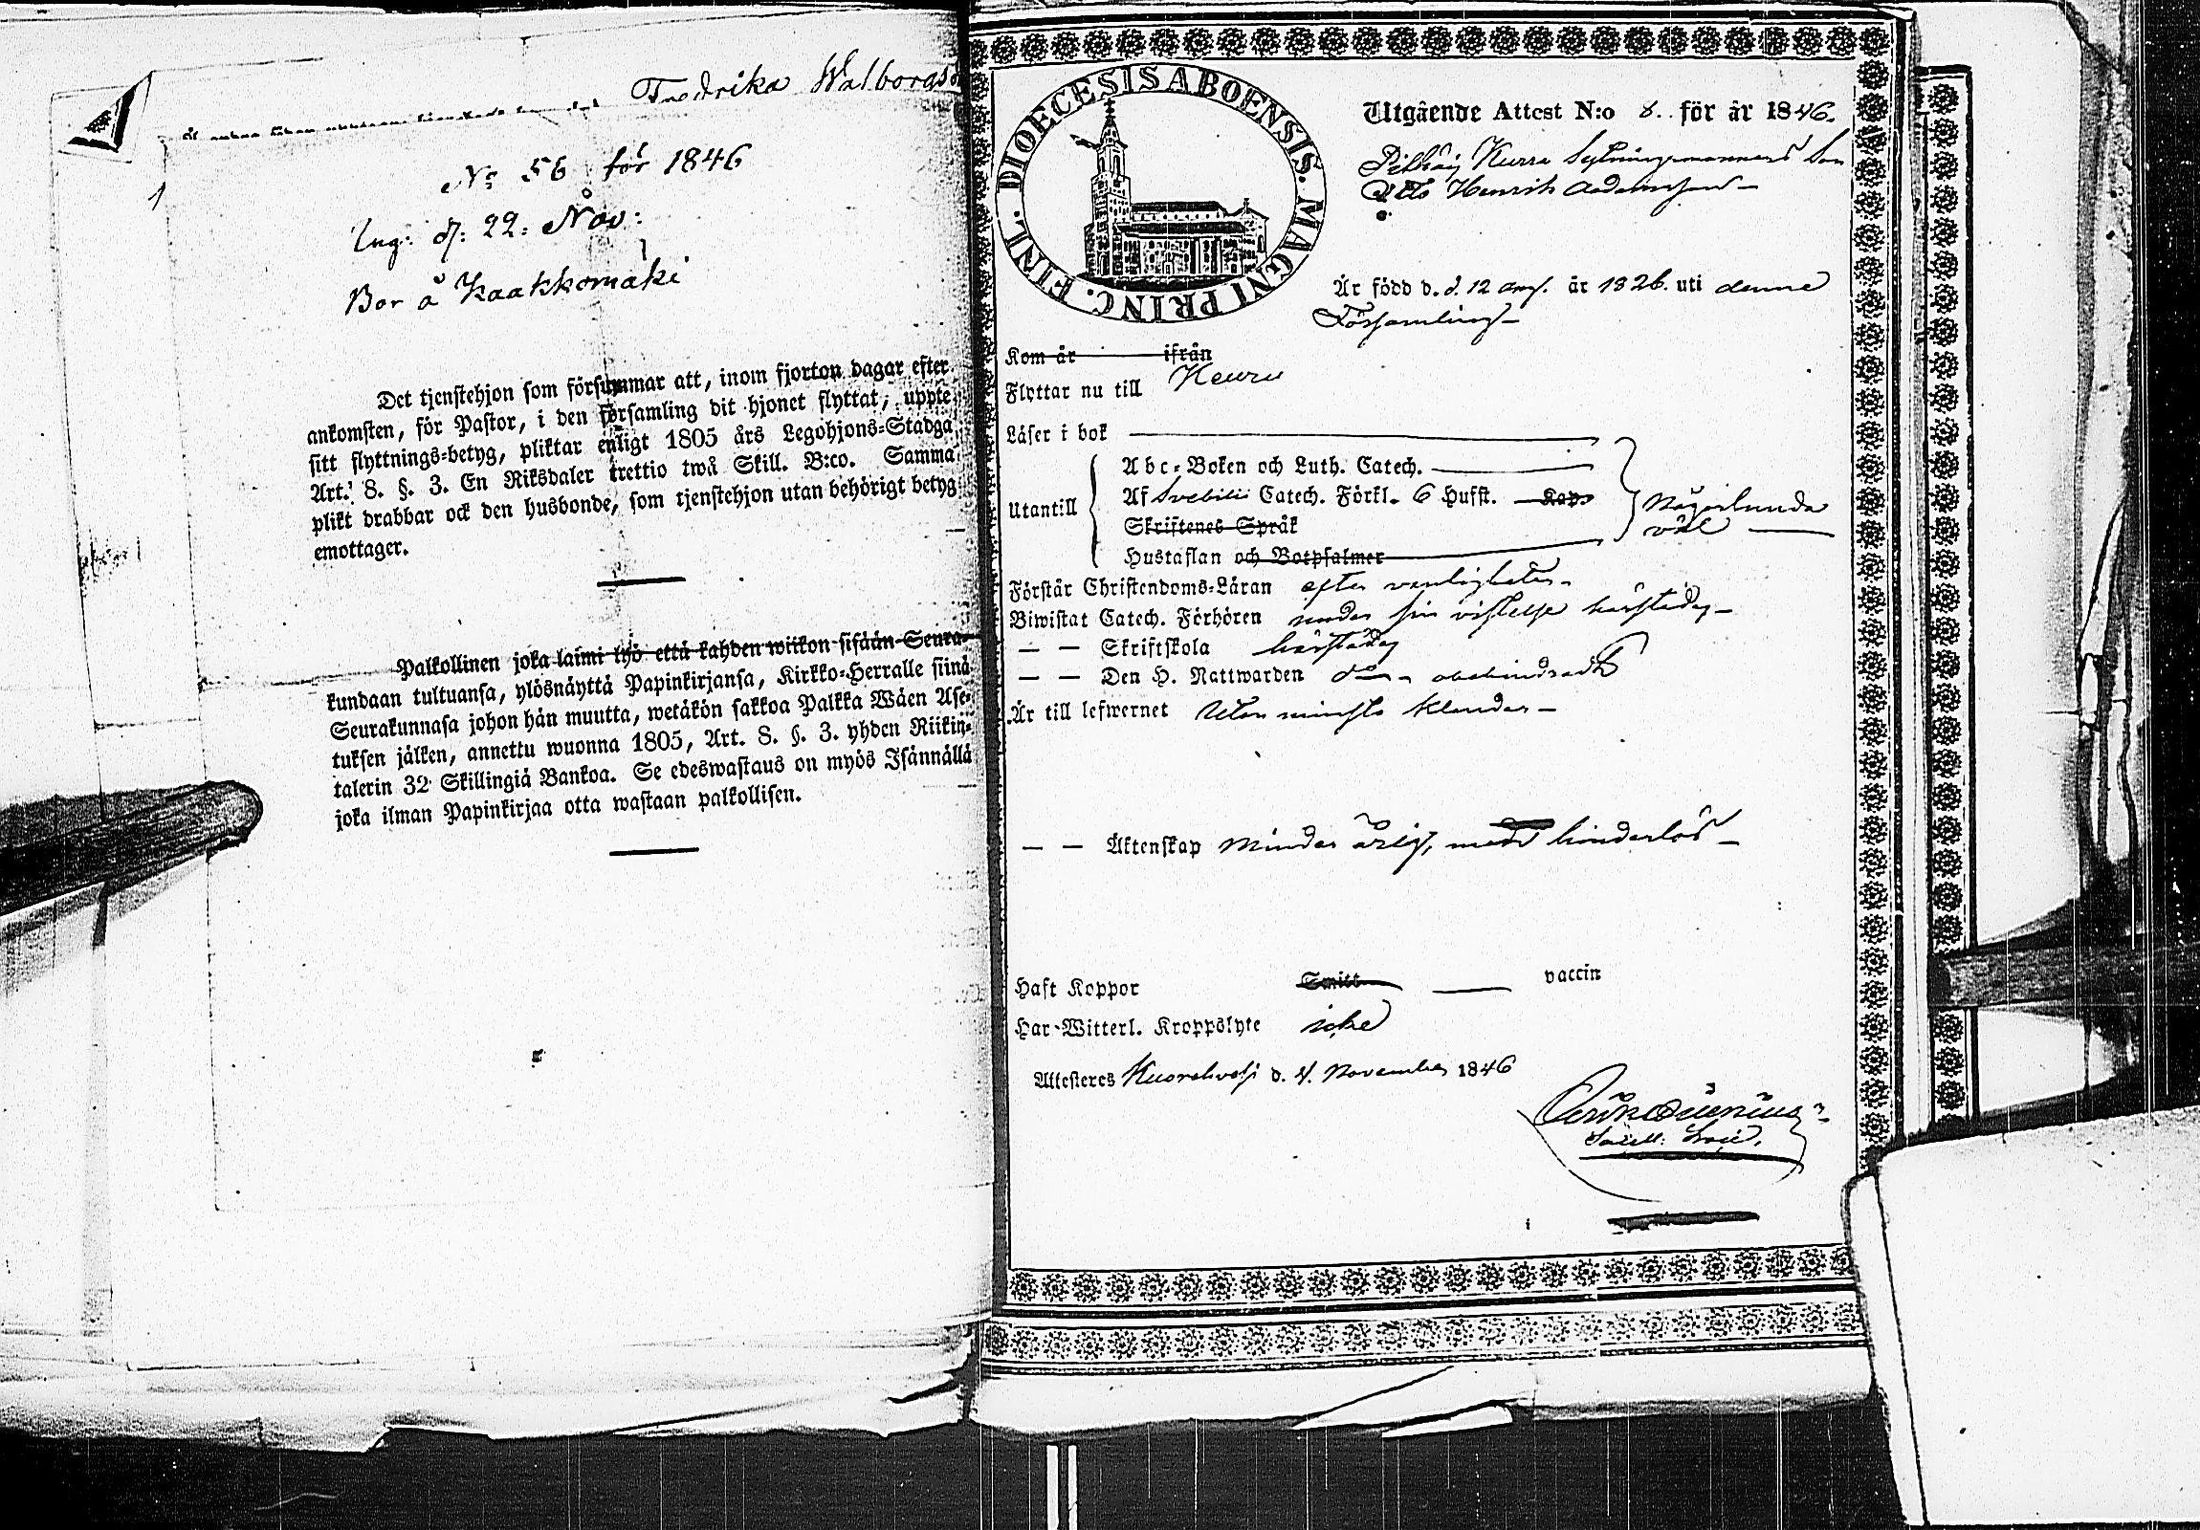 Fredrika Walborgs
No 56 för 1846
Ing: d: 22: Nov:
Bor å Kaakkomäki
Det tjenstehjon som försummar att, inom fjorton dagar efter
ankomsten, för Pastor, i den församling dit hjonet flyttat, uppte
sitt flyttnings-betyg, pliktar enligt 1805 års Legohjons-Stadga
Art. 8. §. 3. En Riksdaler trettio twå Skill. B:co. Samma
plikt drabbar ock den husbonde, som tjenstehjon utan behörigt betyg
emottager.
Palkollinen joka laimi lyö että kahden wiikon sisään Seura-
kundaan tultuansa, ylösnäyttä Papinkirjansa, Kirkko-Herralle siinä
Seurakunnasa johon hän muutta, wetäkön sakkoa Palkka Wäen Ase-
tuksen jälken, annettu wuonna 1805, Art. 8. §. 3. yhden Riikin-
talerin 32 Skillingiä Bankoa. Se edeswastaus on myös Isännällä
joka ilman Papinkirjaa otta wastaan palkollisen.
DIOECESIS ABOENSIS. MAGNI PRINC. FINL.
Utgående Attest N:o 8. för år 1846.
Kurra Son
Henrik
Är född d. d. 12 är 1826. uti denne
Församling
Kom år ifrån
Flyttar nu till Keuru
Läser i bok
Utantill
Abc-Boken och Luth. Catech.
Af Svebilii Catech. Förkl. 6 Hufst. Kap.
Skriftenes Språk
Hustaflan och Botpsalmer
någorlunda
väl
Förstår Christendoms-Läran efter vanligheten
Biwistat Catech. Förhören under sin vistelse härstädes
— — Skriftskola härstädes
— — Den H. Nattwarden obehindradt
Är till lefwernet utan klander
— — Äktenskap minder årig, hinderlös
Haft Koppor Smitt vaccin
Har Witterl. Kroppslyte icke
Attesteres Kuorehvesi d. 4. November 1846